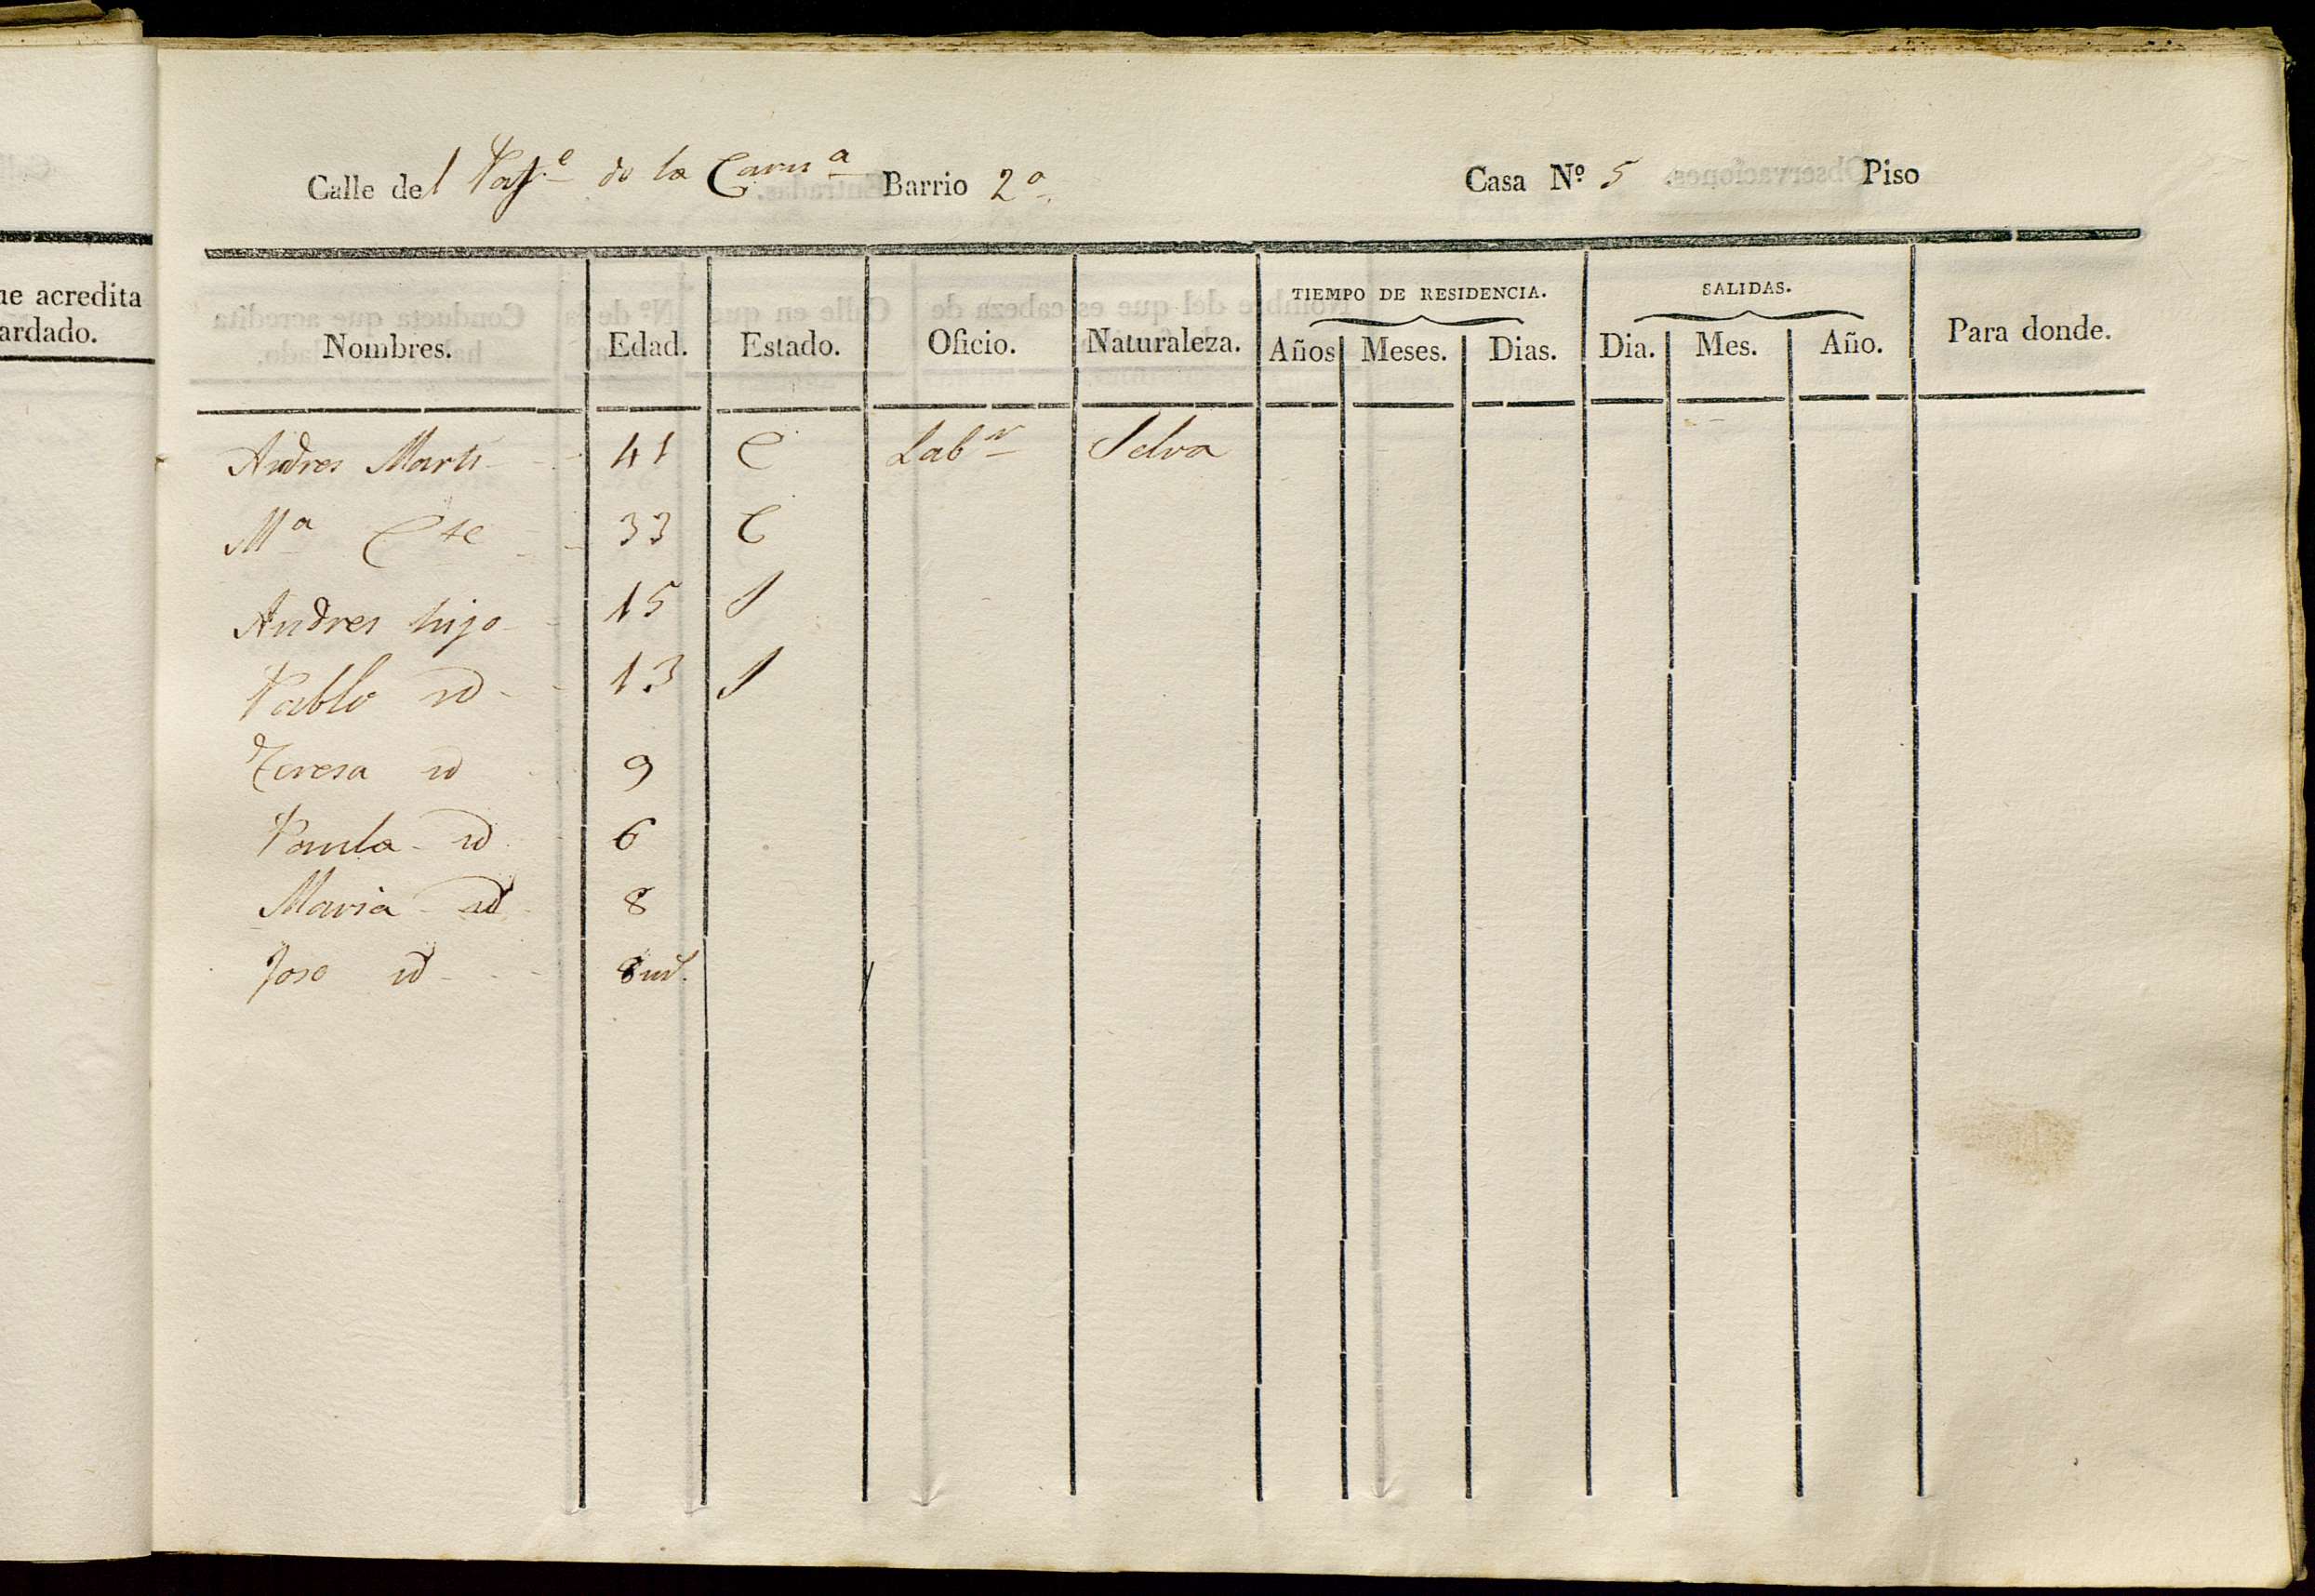 ue acredita
ardado.
Calle del Pasg.e de la Carn.a Barrio 2º Casa Nº 5 Piso
TIEMPO DE RESIDENCIA. SALIDAS.
Nombres. Edad. Estado. Oficio. Naturaleza. Años Meses. Dias. Dia. Mes. Año. Para donde.
Andres Marti 41 C Lab.r Selva
M.a Cte 33 C
Andres hijo 15 S
Pablo id 13 S
Teresa id 9
Paula id 6
Maria id 8
Jose id 8